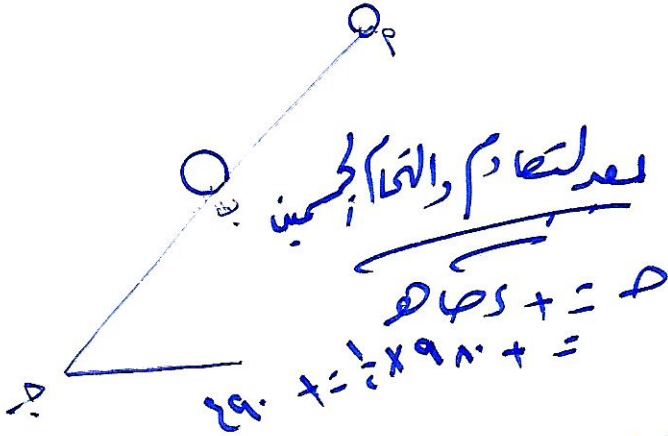 م
ب
بعد لتصادم والتحام الجسمين
حـ = + د حا هـ
= + ٩٨٠ × ½ = + ٤٩٠
جـ